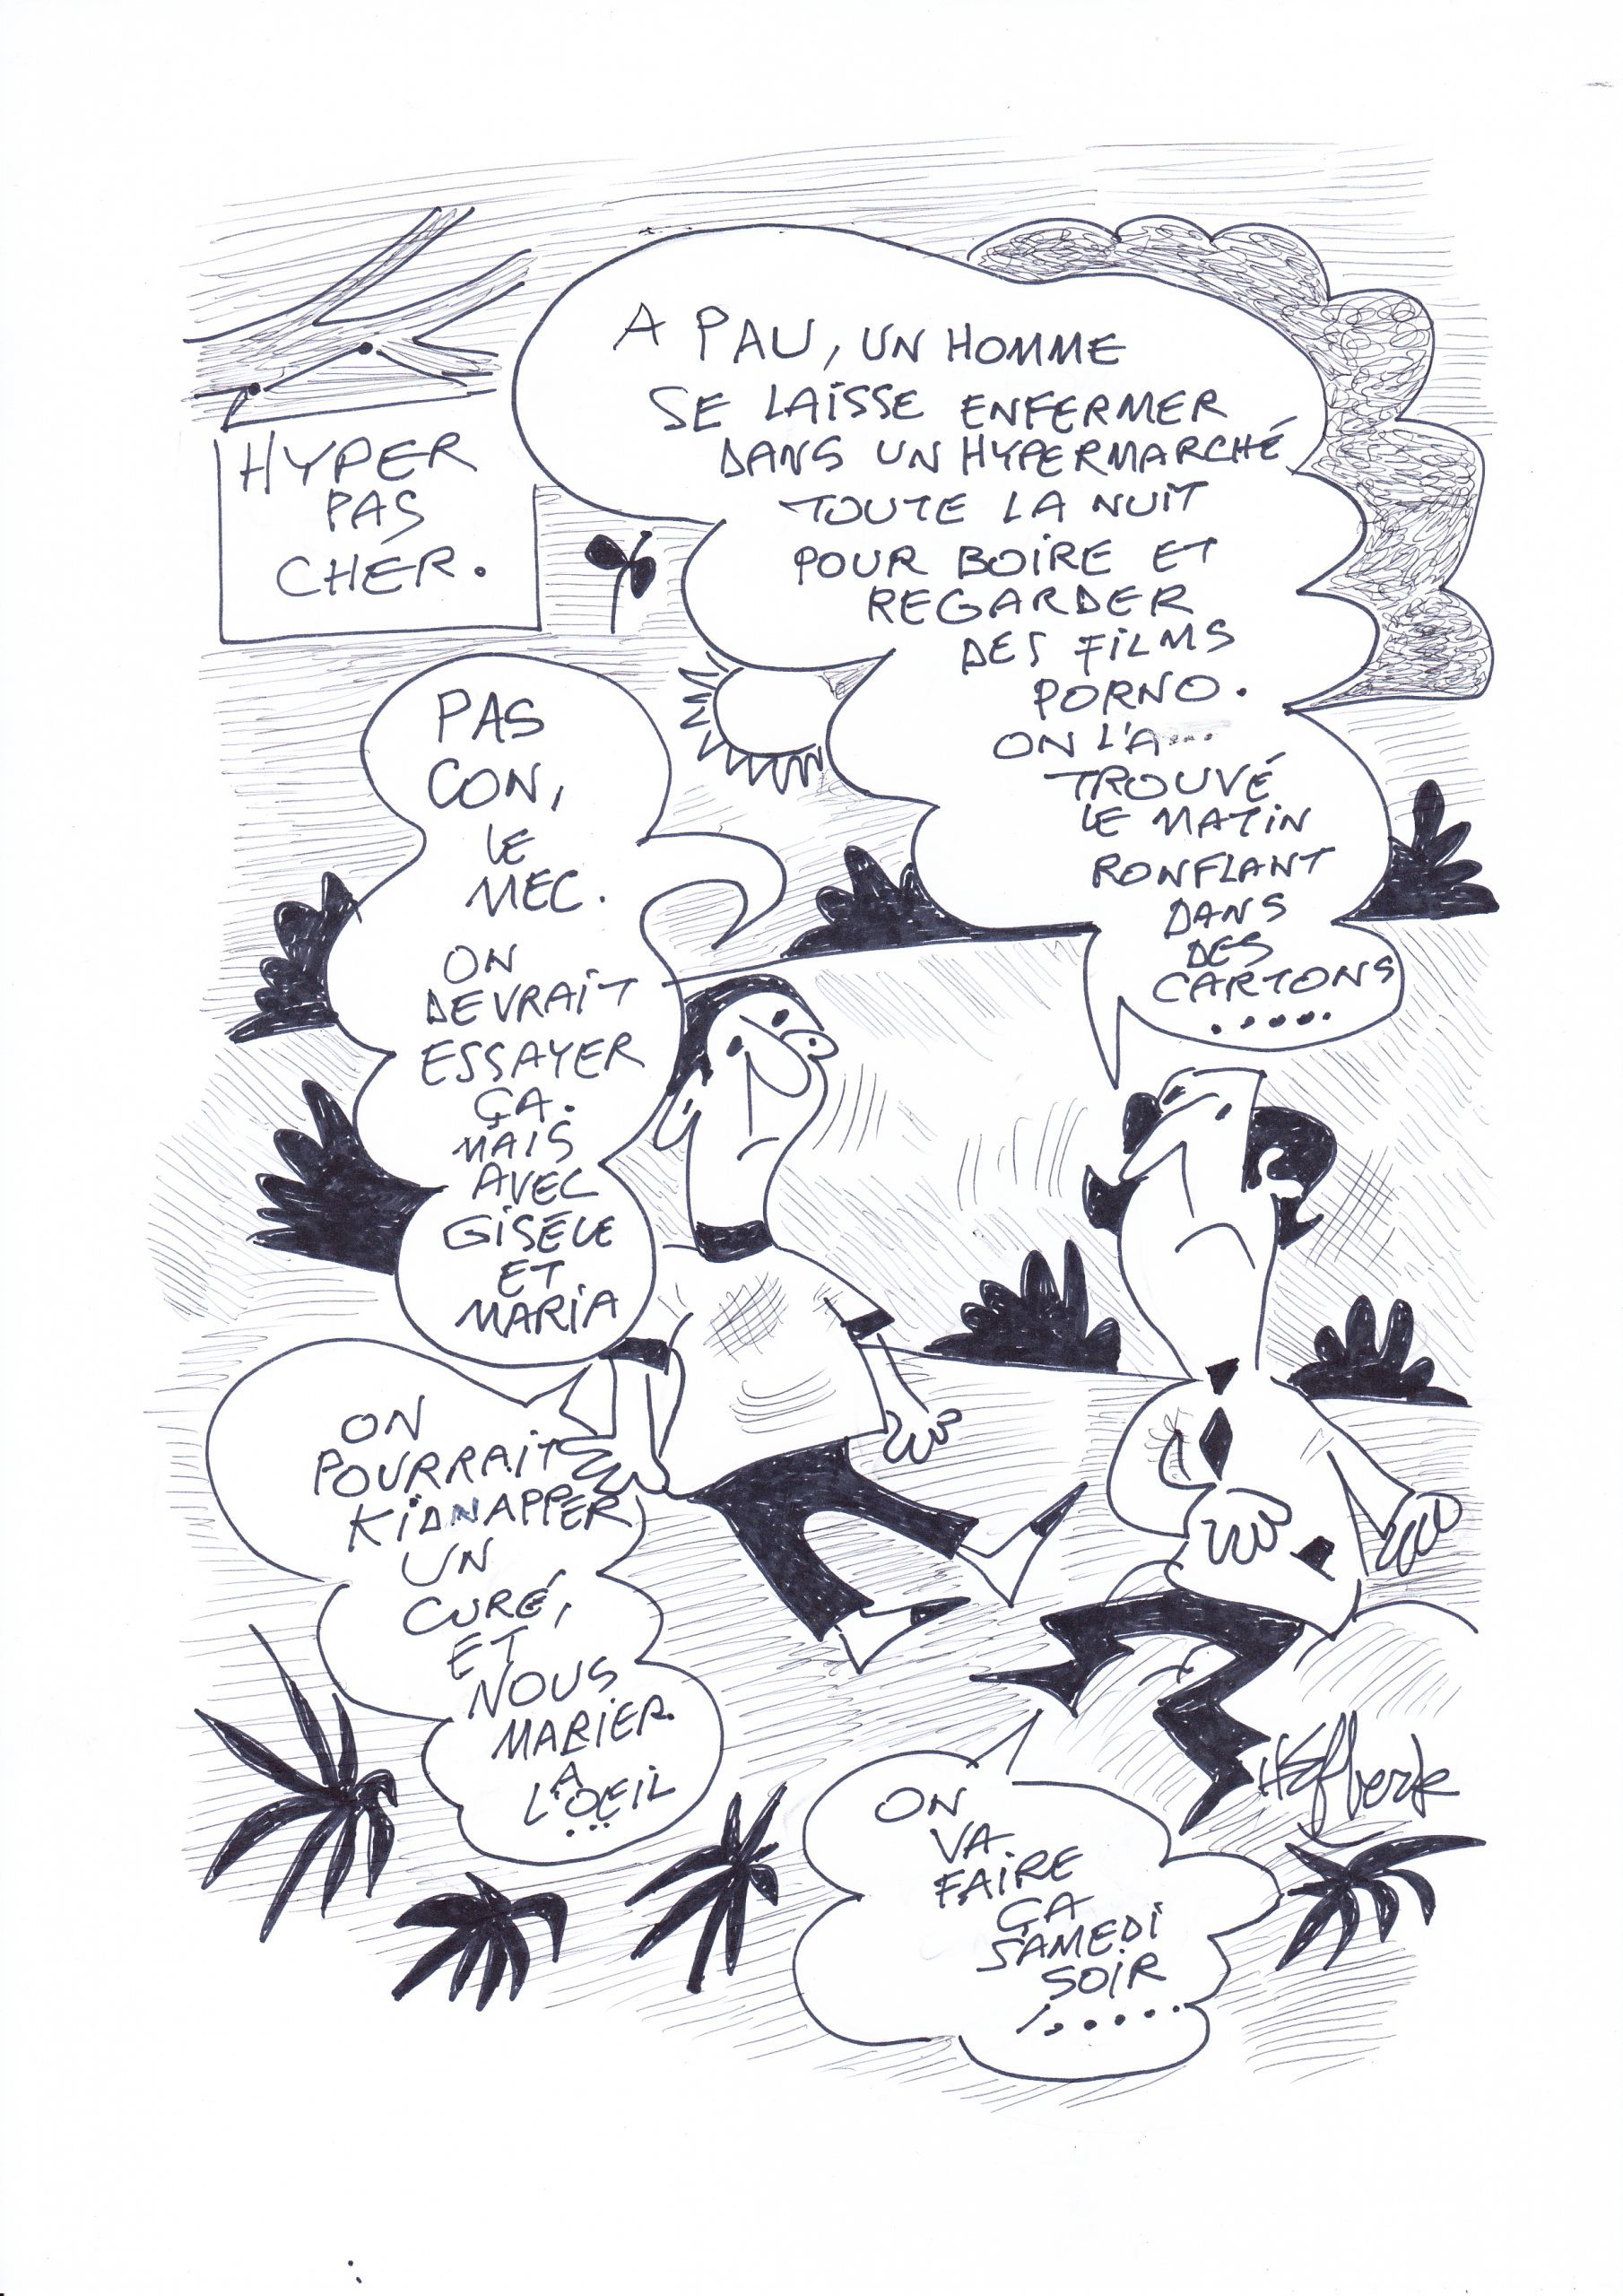 HYPER
PAS
CHER.
A PAU, UN HOMME
SE LAISSE ENFERMER
DANS UN HYPERMARCHÉ
TOUTE LA NUIT
POUR BOIRE ET
REGARDER
DES FILMS
PORNO.
ON L'A...
TROUVÉ
LE MATIN
RONFLANT
DANS
DES
CARTONS
.....
PAS
CON,
LE
MEC.
ON
DEVRAIT
ESSAYER
ÇA.
MAIS
AVEC
GISÈLE
ET
MARIA
ON
POURRAIT
KIDNAPPER
UN
CURÉ,
ET
NOUS
MARIER.
A
L'OEIL
...
ON
VA
FAIRE
ÇA
SAMEDI
SOIR
......